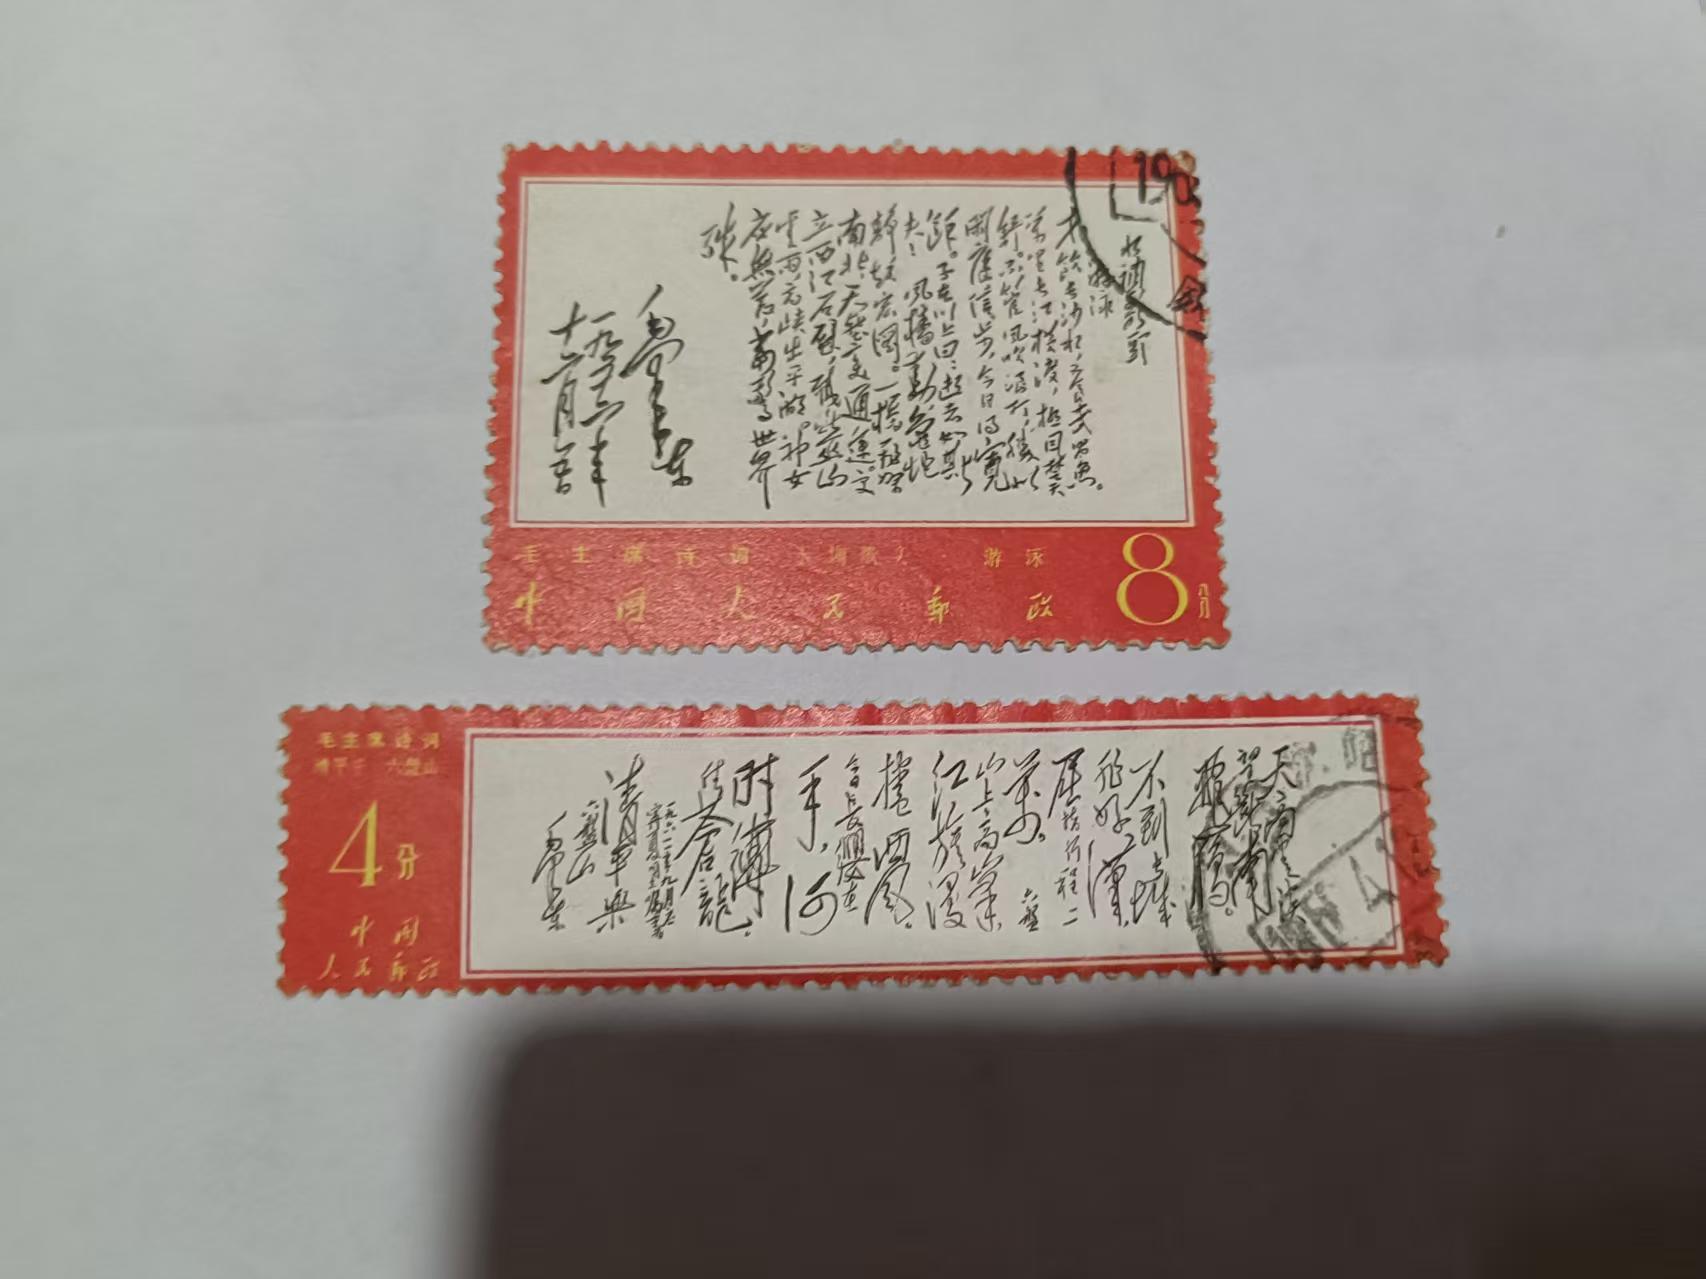 水調歌頭
游泳
才飲长沙水,又食武昌魚。
萬里长江横渡,极目楚天
舒。不管风吹浪打,勝似
閑庭信步,今日得寬
馀。子在川上曰:逝者如斯
夫! 风樯動,龜蛇
静,起宏图。一橋飛架
南北,天塹变通途。更
立西江石壁,截断巫山
云雨,高峡出平湖。神女
应無恙,当驚世界
殊。
毛泽东
一九五六年
十二月五日
毛主席诗词 水调歌头·游泳
中国人民邮政
8分
毛主席诗词
清平乐·六盘山
4分
中国
人民邮政
天高云淡
望断南
飛雁。
不到长城
非好漢!
屈指行程二
萬。六盤
山上高峰
红旗漫
捲西風。
今日长纓在
手,何
时縛
住苍龍?
一九六一年九月应
寧夏同志嘱書
清平樂
六盤山
毛泽东